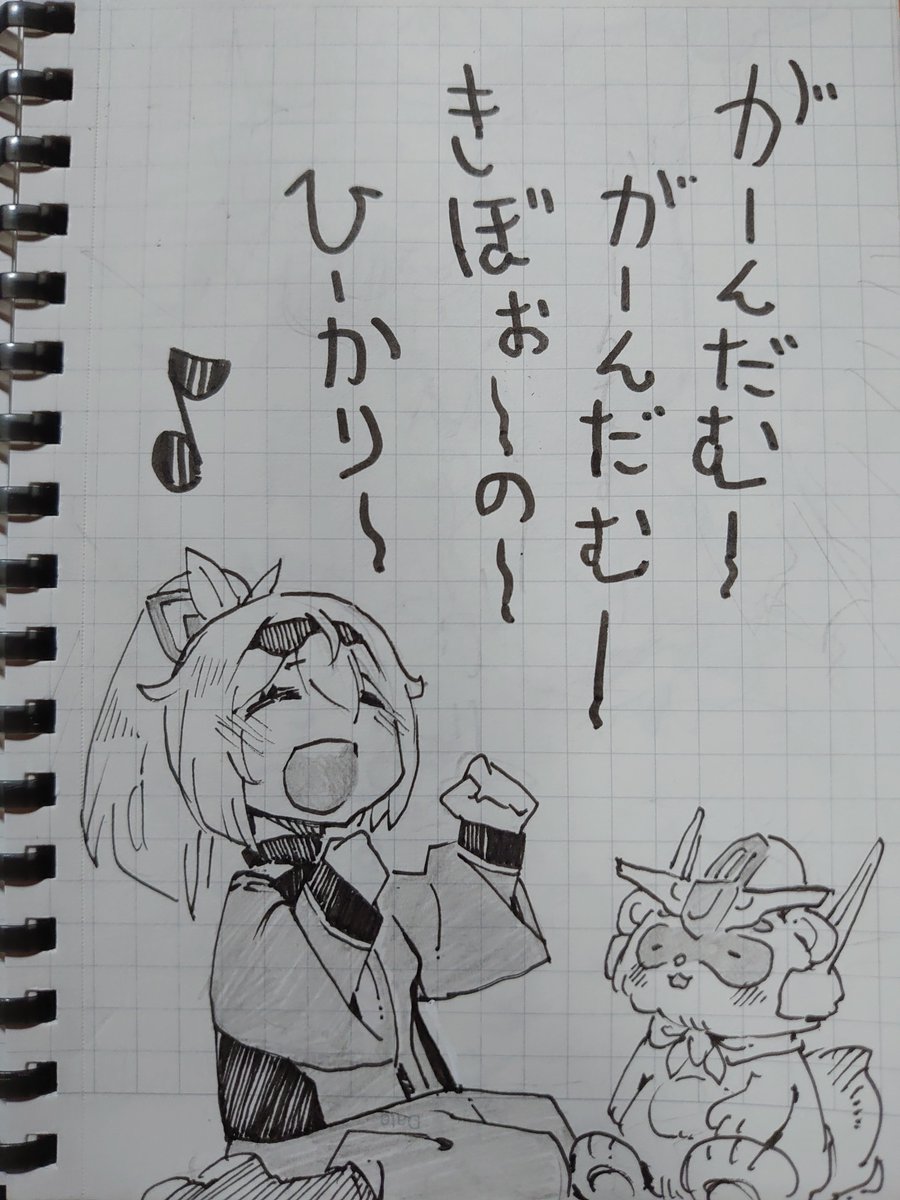 がーんだむ〜
がーんだむー
きぼぉ〜の〜
ひーかり〜
Date